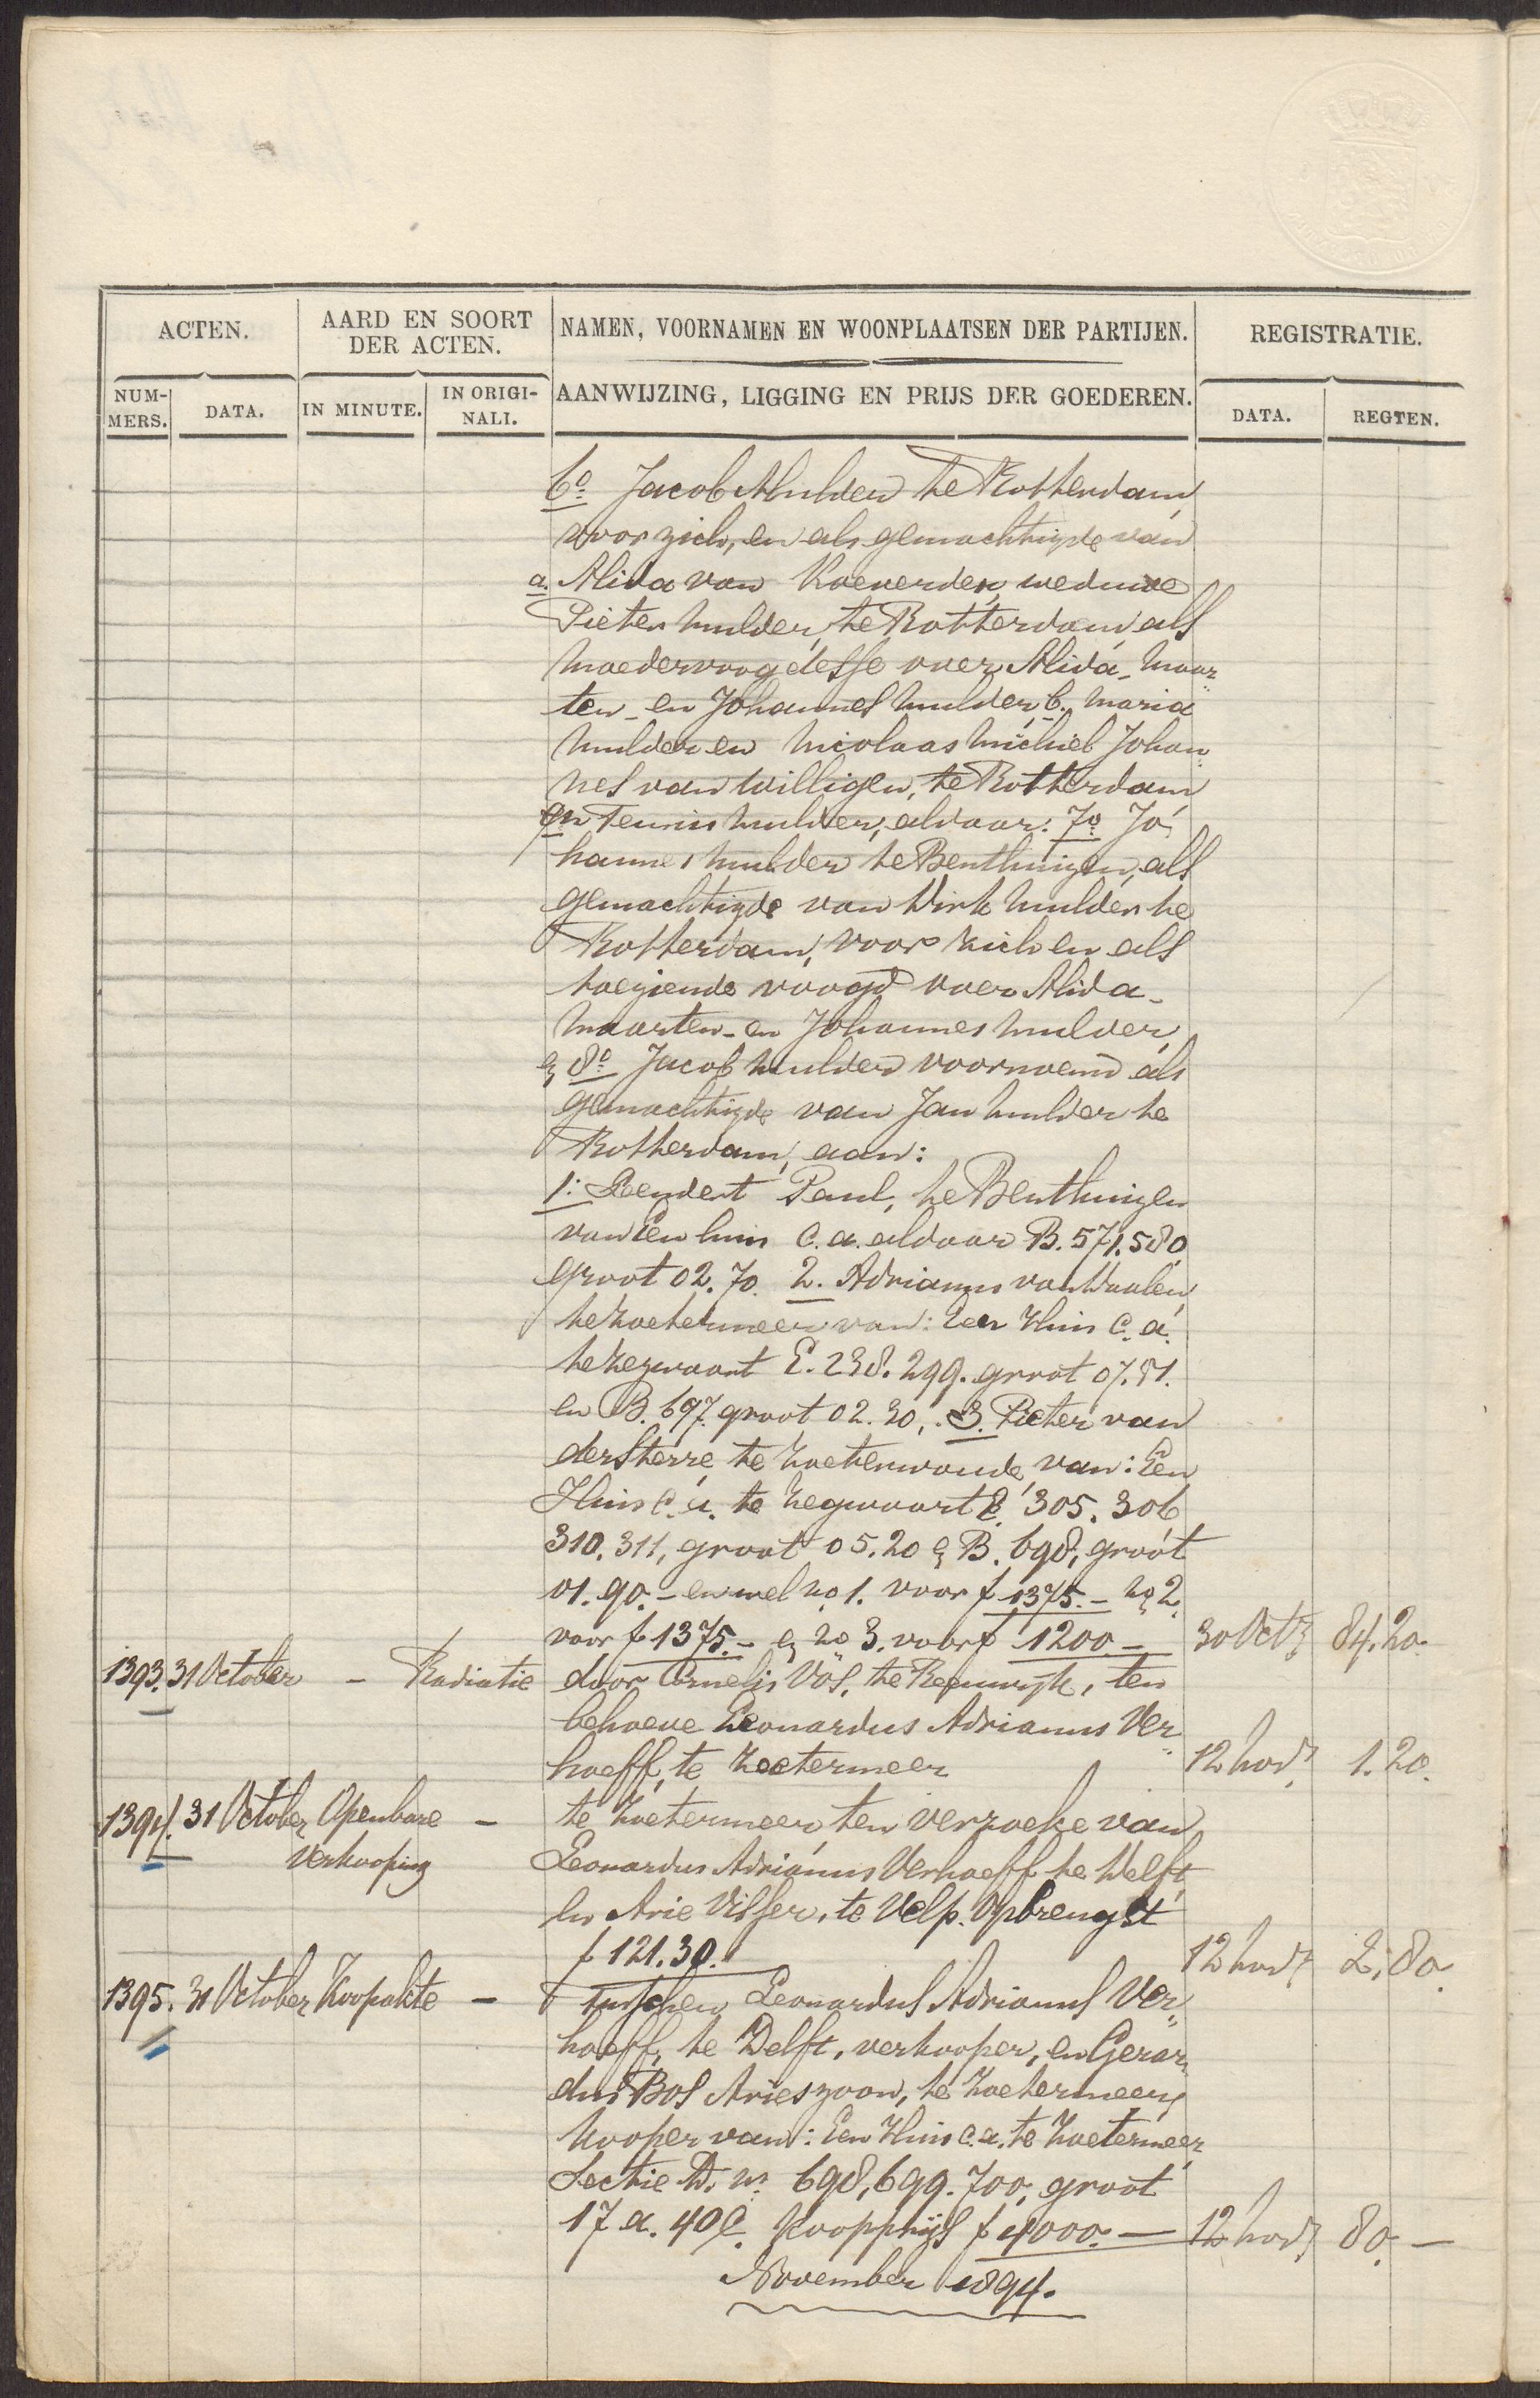 ACTEN.
AARD EN SOORT
DER ACTEN.
NAMEN, VOORNAMEN EN WOONPLAATSEN DER PARTIJEN.
REGISTRATIE.
NUM-
MERS.
DATA.
IN MINUTE.
IN ORIGI-
NALI.
AANWIJZING, LIGGING EN PRIJS DER GOEDEREN.
DATA.
REGTEN.
6o Jacob Mulder te Rotterdam,
voor zich, en als gemachtigde van
a. Alida van Koeverden, weduwe
Pieter Mulder, te Rotterdam, als
moedervoogdesse over Alida- Maar
ten- en Johannes Mulder, b. Maria
Mulder en Nicolaas Michiel Johan
nes van Willigen, te Rotterdam
en Teunis Mulder, aldaar. 7o Jo
hannes Mulder te Benthuizen, als
gemachtigde van Dirk Mulder te
Rotterdam, voor zich en als
toeziende voogd over Alida-
Maarten- en Johannes Mulder,
& 8o Jacob Mulder voornoemd als
gemachtigde van Jan Mulder te
Rotterdam, aan:
1: Leendert Paul, te Benthuizen
van Een huis c.a. aldaar B. 571.580
groot 02.70. 2. Adrianus van Daalen,
te Zoetermeer van: Een Huis c.a.
te Zegwaart E. 238. 299. groot 07.81.
en B. 697. groot 02.30,. 3. Pieter van
der Sterre, te Zoeterwoude, van: Een
Huis c.a. te Zegwaart E. 305. 306
310. 311, groot 05.20 & B. 698, groot
01.90.- en wel no 1. voor f 1375.- no 2.
voor f 1375.- & no 3. voor f 1200.- 30 Oct 84.20.
1393. 31 October - Radiatie door Cornelis Vos, te Reeuwijk, ten
behoeve Leonardus Adrianus Ver
hoeff, te Zoetermeer 12 Nov 1.20.
1394. 31 October Openbare - te Zoetermeer, ten verzoeke van
verkooping Leonardus Adrianus Verhoeff te Delft
en Arie Visser, te Velp. Opbrengst
f 121.30. 12 Nov 2,80
1395. 31 October Koopakte - Tusschen Leonardus Adrianus Ver
hoeff, te Delft, verkooper, en Gerar
dus Bos Arieszoon, te Zoetermeer,
kooper van: Een Huis c.a. te Zoetermeer,
Sectie D. no 698, 699. 700, groot
17 a. 40 c. Koopprijs f 4000.- 12 Nov 80.-
November 1894.